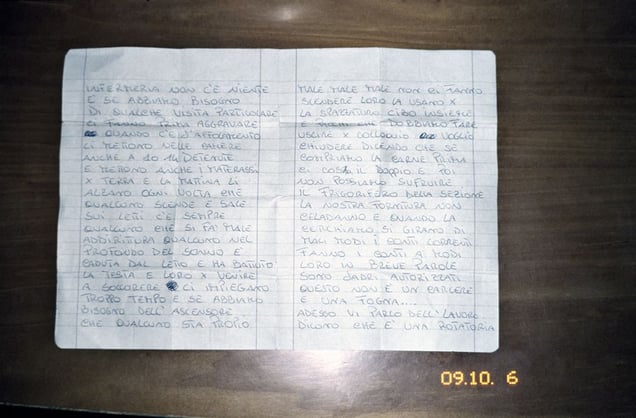 INFERMERIA NON C'È NIENTE
E SE ABBIAMO BISOGNO
DI QUALCHE VISITA PARTICOLARE
CI FANNO PRIMA AGGRAVARE
QUANDO C'È L'AFFOLLAMENTO
CI METTONO NELLE CAMERE
ANCHE A 10 14 DETENUTE
E METTONO ANCHE I MATERASSI
X TERRA E LA MATTINA LI
ALZANO OGNI VOLTA CHE
QUALCUNO SCENDE E SALE
SUI LETTI C'È SEMPRE
QUALCUNO CHE SI FA' MALE
ADDIRITTURA QUALCUNO NEL
PROFONDO DEL SONNO È
CADUTA DAL LETO E HA BATTUTO
LA TESTA E LORO X VENIRE
A SOCORERE CI IMPIEGANO
TROPPO TEMPO E SE ABBIAMO
BISOGNO DELL'ASCENSORE
CHE QUALCUNO STA TROPIO
MALE MALE MALE NON CI FANNO
SCENDERE LORO LA USANO X
LA SPAZZATURA CIBO INSIEME
E DOBBIAMO FARE
USCIRE X COLLOQUIO VOGLIO
CHIUDERE DICENDO CHE SE
COMPRIAMO LA CARNE PRIMA
CI COSTA IL DOPPIO E POI
NON POSSIAMO SUFRUIRE
IL FRIGORIFERO DELLA SEZIONE
LA NOSTRA FORNITURA NON
CELADANNO E QUANDO LA
CERCHIAMO SI GIRANO DI
MALI MODI I CONTI CORRENTI
FANNO I CONTI A MODI
LORO IN BREVE PAROLE
SONO LADRI AUTORIZZATI
QUESTO NON È UN CARCERE
È UNA FOGNA....
ADESSO VI PARLO DELL'LAVORO
DICONO CHE È UNA ROTATORIA
09.10. 6